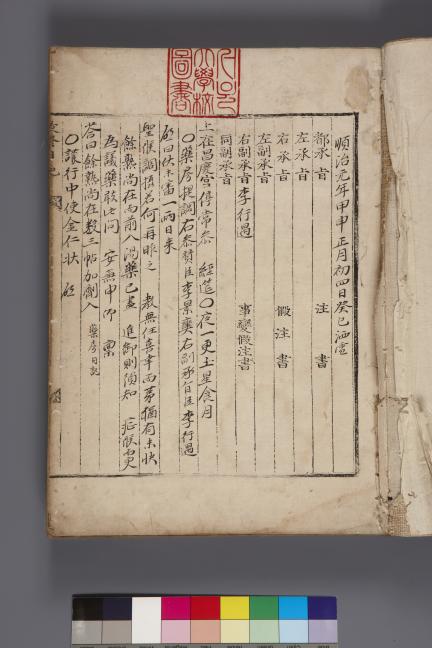 順治元年甲申正月初四日癸巳洒雪
都承旨 注書
左承旨
右承旨 假注書
左副承旨
右副承旨李行遇 事變假注書
同副承旨
上在昌慶宮停常參 經筵〇夜一更土星食月
〇藥房提調右參贊臣李景奭右副承旨臣李行遇
啓曰伏未審一兩日來
聖候調攝若何再昨之 敎無任喜幸而第猶有未快
餘熱尙在而前入湯藥已盡 進御則須知 症候而更
爲議藥敢此問 安兼申仰 稟
答曰餘熱尙在數三帖加劑入 藥房日記
〇護行中使金仁狀 啓